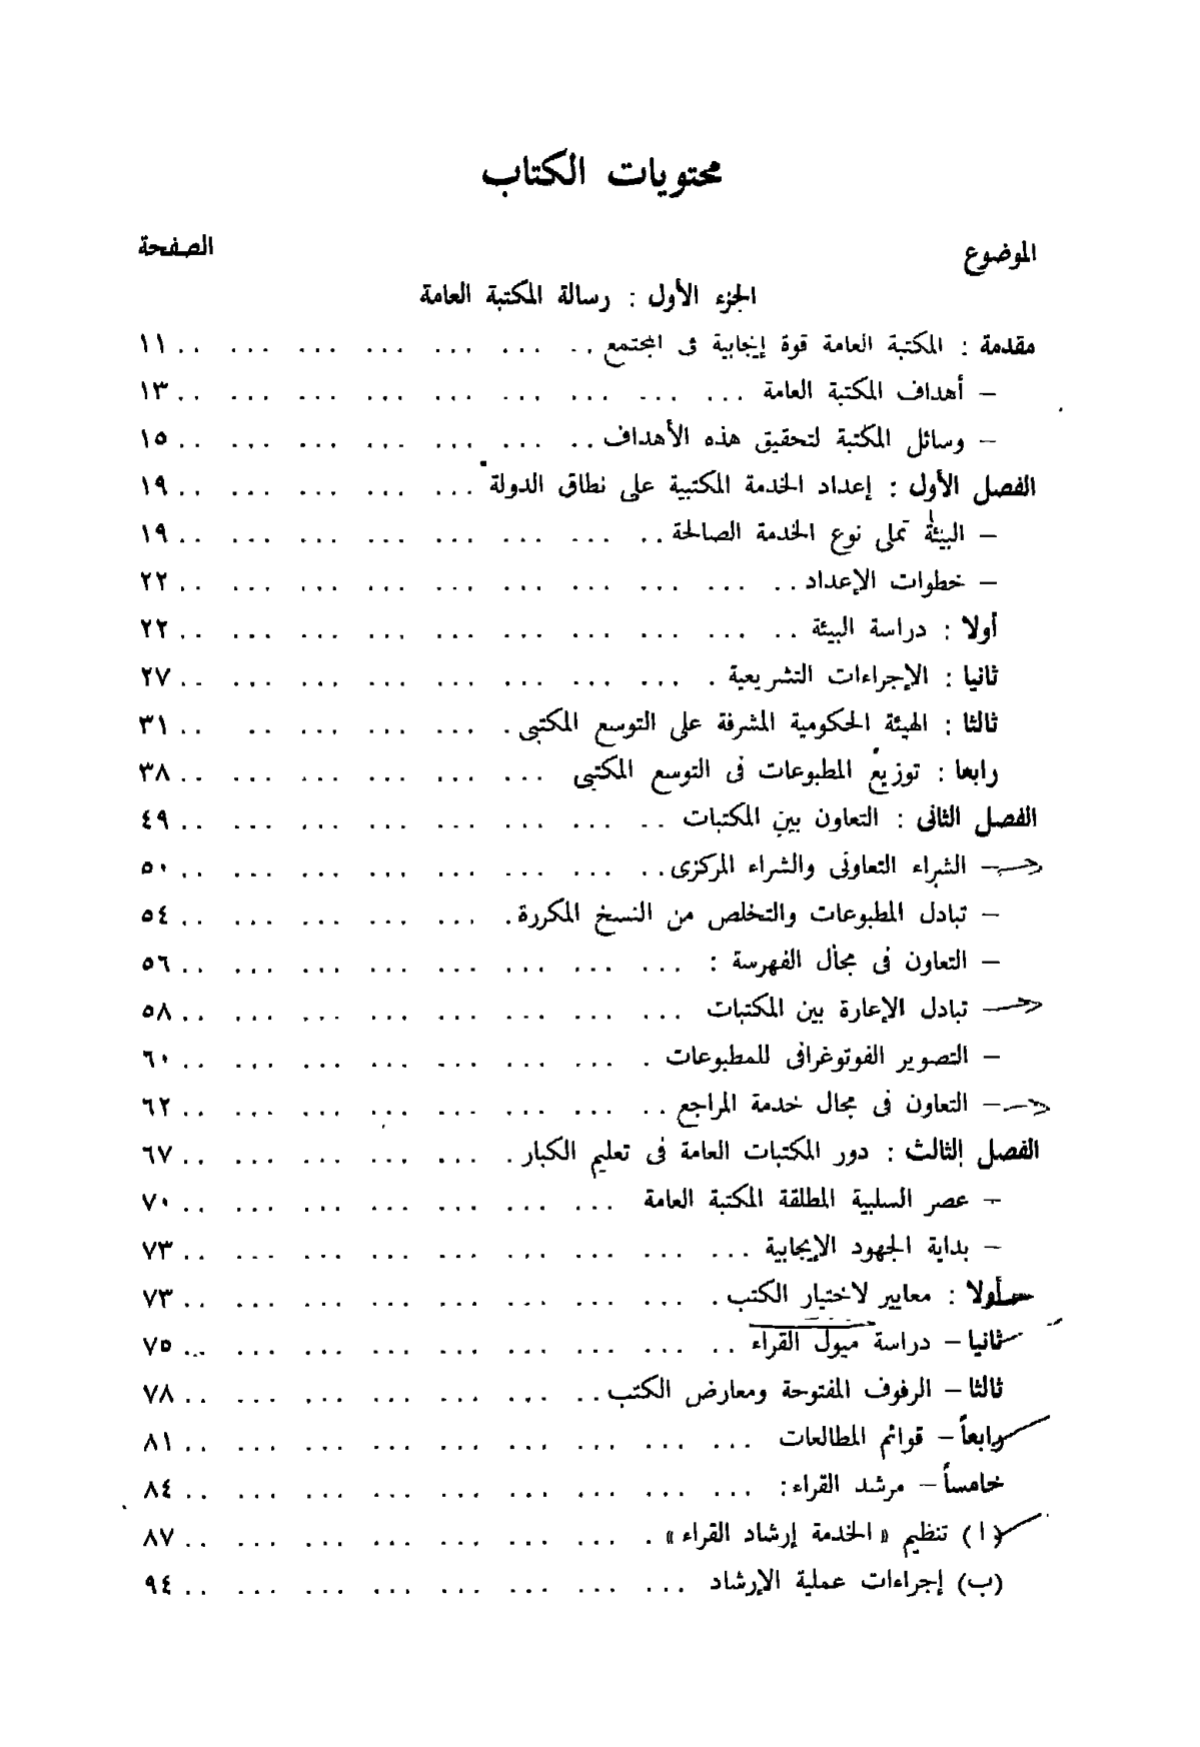 محتويات الكتاب
الموضوع الصفحة
الجزء الأول : رسالة المكتبة العامة
مقدمة : المكتبة العامة قوة إيجابية فى المجتمع .. ... ... ... ... ... .. ١١
– أهداف المكتبة العامة ... ... ... ... ... ... ... ... .. ١٣
– وسائل المكتبة لتحقيق هذه الأهداف .. ... ... ... ... ... .. ١٥
الفصل الأول : إعداد الخدمة المكتبية على نطاق الدولة ... ... ... ... .. ١٩
– البيئة تملى نوع الخدمة الصالحة .. ... ... ... ... ... ... .. ١٩
– خطوات الإعداد .. ... ... ... ... ... ... ... ... .. ٢٢
أولا : دراسة البيئة .. ... ... ... ... ... ... ... ... .. ٢٢
ثانيا : الإجراءات التشريعية . ... ... ... ... ... ... ... .. ٢٧
ثالثا : الهيئة الحكومية المشرفة على التوسع المكتبى . ... ... ... .. .. ٣١
رابعا : توزيع المطبوعات فى التوسع المكتبى ... ... ... ... ... .. ٣٨
الفصل الثانى : التعاون بين المكتبات .. ... ... ... ... ... ... .. ٤٩
– الشراء التعاونى والشراء المركزى .. ... ... ... ... ... ... .. ٥٠
– تبادل المطبوعات والتخلص من النسخ المكررة . ... ... ... ... .. ٥٤
– التعاون فى مجال الفهرسة : ... ... ... ... ... ... ... .. ٥٦
– تبادل الإعارة بين المكتبات ... ... ... ... ... ... ... .. ٥٨
– التصوير الفوتوغرافى للمطبوعات . ... ... ... ... ... ... .. ٦٠
– التعاون فى مجال خدمة المراجع .. ... ... ... ... ... ... .. ٦٢
الفصل الثالث : دور المكتبات العامة فى تعليم الكبار . ... ... ... ... .. ٦٧
– عصر السلبية المطلقة المكتبة العامة ... ... ... ... ... ... .. ٧٠
– بداية الجهود الإيجابية ... ... ... ... ... ... ... ... .. ٧٣
أولا : معايير لاختيار الكتب . ... ... ... ... ... ... ... .. ٧٣
ثانيا – دراسة ميول القراء .. ... ... ... ... ... ... ... .. ٧٥
ثالثا – الرفوف المفتوحة ومعارض الكتب .. ... ... ... ... ... .. ٧٨
رابعاً – قوائم المطالعات ... ... ... ... ... ... ... ... .. ٨١
خامساً – مرشد القراء : ... ... ... ... ... ... ... ... .. ٨٤
( ا ) تنظيم « الخدمة إرشاد القراء » . ... ... ... ... ... ... .. ٨٧
(ب) إجراءات عملية الإرشاد ... ... ... ... ... ... ... .. ٩٤